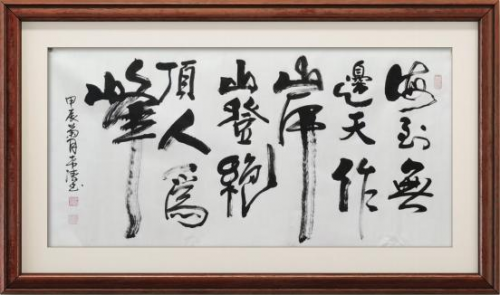 海到無
邊天作
岸
山登絶
頂人爲
峰
甲辰